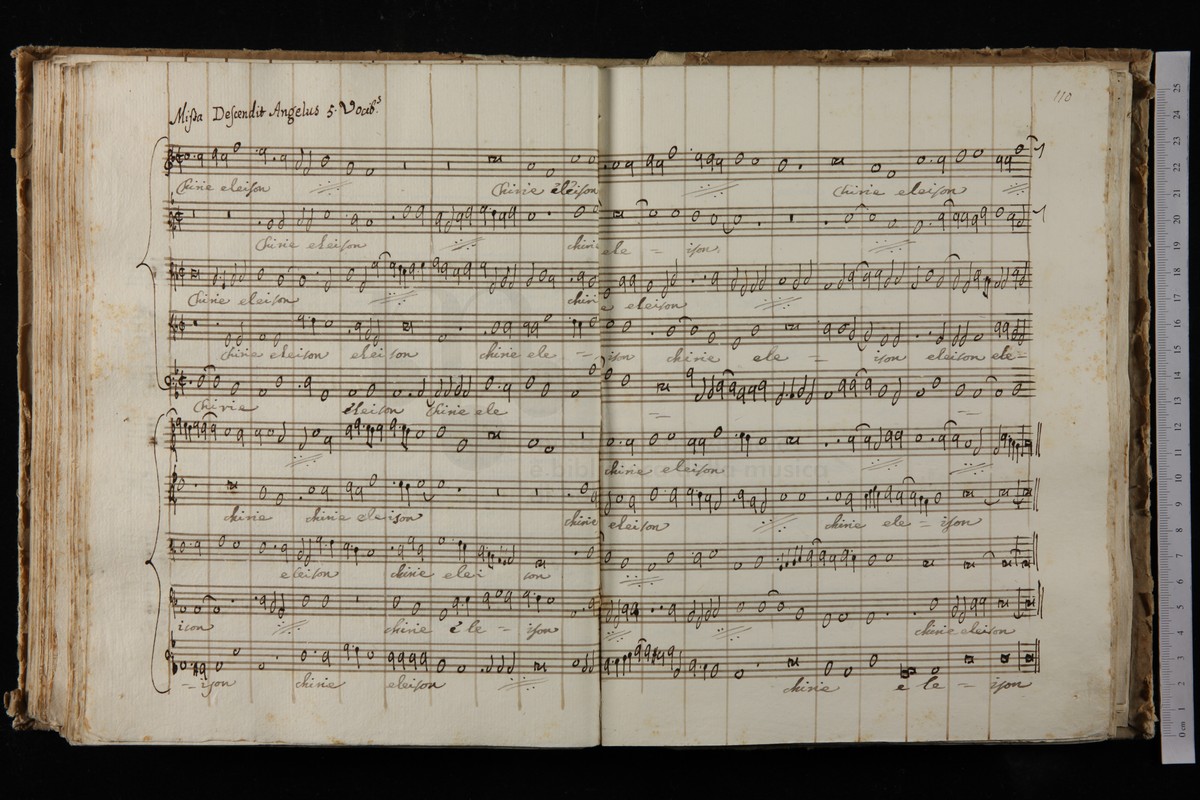 Missa Descendit Angelus 5. Vocibs.
110
Chirie eleison Chirie eleison Chirie eleison
Chirie eleison chirie ele = ison.
Chirie eleison chirie eleison
chirie eleison eleison chirie ele = ison chirie ele = ison eleison ele=
Chirie eleison Chirie ele
chirie eleison
chirie chirie eleison chirie eleison chirie ele = ison
eleison chirie elei son
ison chirie ele = ison chirie eleison
= ison chirie eleison chirie e le = ison